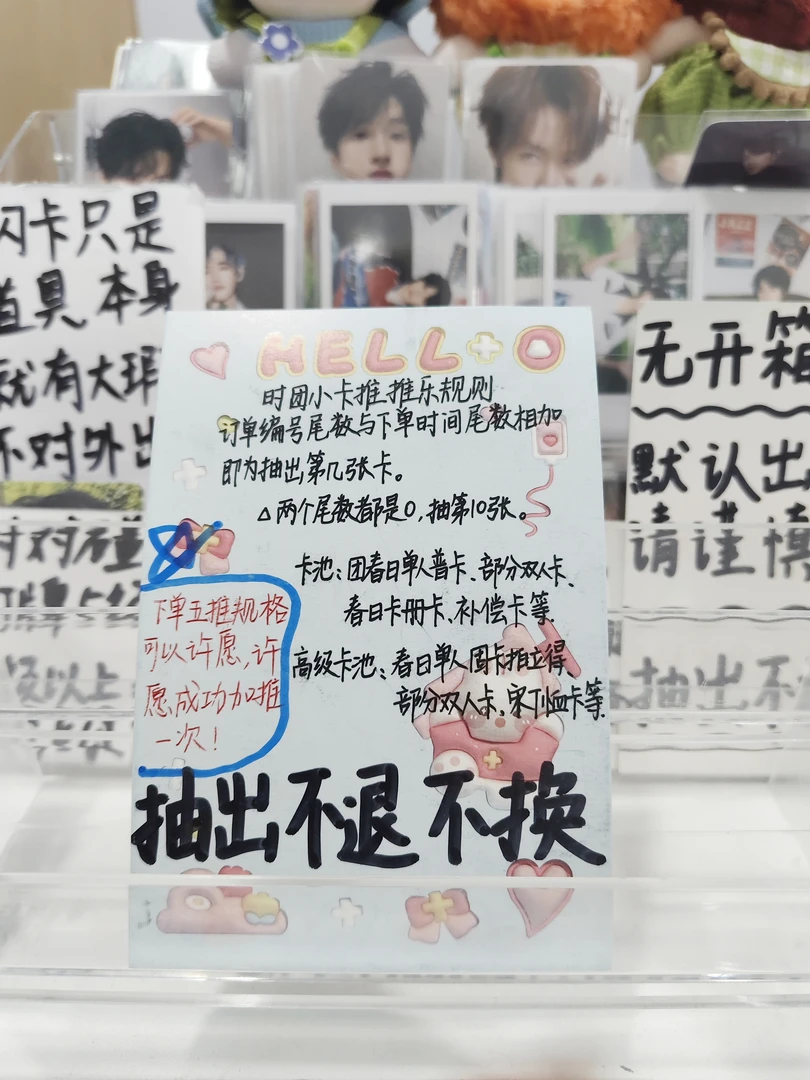 HELLO
时团小卡推推乐规则
订单编号尾数与下单时间尾数相加
即为抽出第几张卡。
△两个尾数都是0,抽第10张。
卡池:团春日单人普卡、部分双人卡、
春日卡册卡、补偿卡等
高级卡池:春日单人周卡拍立得、
部分双人卡、宋T恤卡等
下单五推规格
可以许愿,许
愿成功加推
一次!
抽出不退不换
闪卡只是
道具,本身
就有大瑕
不对外出
无开箱
默认出
请谨慎
抽出不